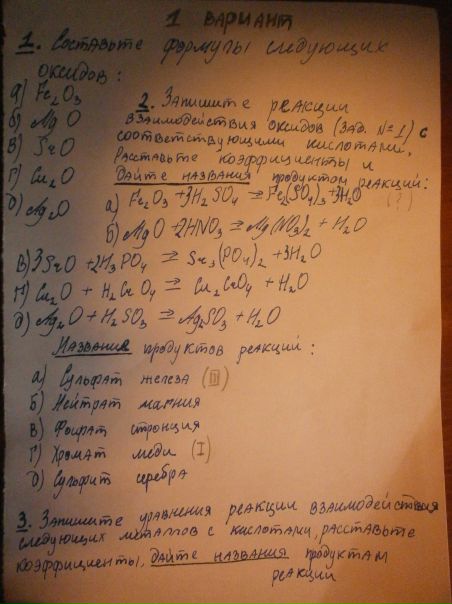 1 ВАРИАНТ
1. Составьте формулы следующих
оксидов:
а) Fe2O3
б) MgO
в) SrO
г) Cu2O
д) Ag2O
2. Запишите реакции
взаимодействия оксидов (зад. №1) с
соответствующими кислотами,
расставьте коэффициенты и
дайте названия продуктам реакций:
а) Fe2O3 + 3H2SO4 ⇄ Fe2(SO4)3 + 3H2O (?)
б) MgO + 2HNO3 ⇄ Mg(NO3)2 + H2O
в) 3SrO + 2H3PO4 ⇄ Sr3(PO4)2 + 3H2O
г) Cu2O + H2CrO4 ⇄ Cu2CrO4 + H2O
д) Ag2O + H2SO3 ⇄ Ag2SO3 + H2O
Названия продуктов реакций:
а) Сульфат железа (III)
б) Нейтрат магния
в) Фосфат стронция
г) Хромат меди (I)
д) Сульфит серебра
3. Запишите уравнения реакции взаимодействия
следующих металлов с кислотами, расставьте
коэффициенты, дайте названия продуктам
реакции